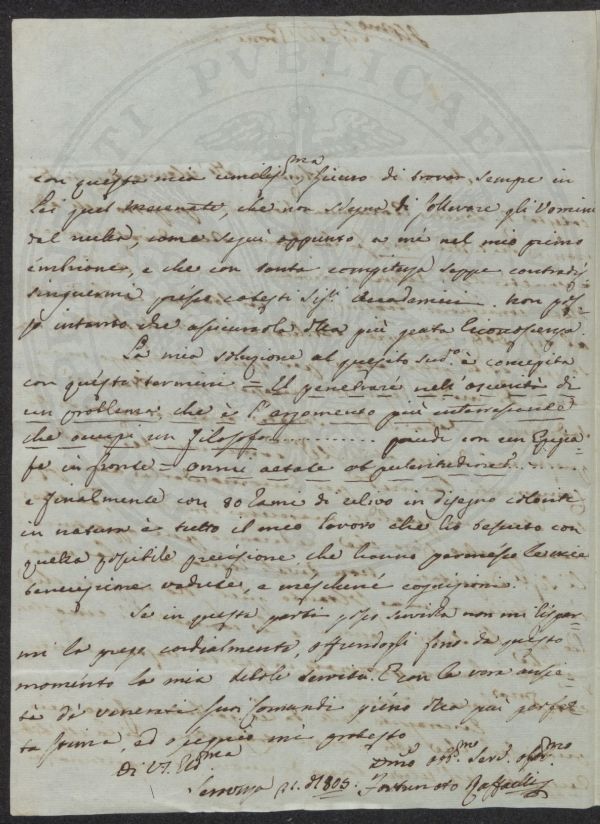 con questa mia umiliss.ma sicuro di trovar sempre in
Lei quel mecenate, che non sdegna di sollevare gli Uomini
dal nulla, come seguì appunto, a mè nel mio primo
embrione, e che con tanta compitezza seppe contradi-
singuermi presso cotesti Sig.i Accademici. Non pos-
so intanto che assicurarla della più grata riconoscenza.
La mia soluzione al quesito sud.o è concepita
con questi termini = Il penetrare nell'oscurità di
un problema che è l'argomento più interressante
che occupi un Filosofo . . . . . . . . . . con un Epigra-
fe in fronte = omni aetate
e finalmente con 80 rami di ulivo in disegno coloriti
in natura è tutto il mio lavoro che hò tessuto con
quella possibile precisione che hanno permesso le mie
vedute, e meschine cognizioni.
Se in questa parte posso servirla non mi rispar-
mi la prego cordialmente, offrendogli fino da questo
momento la mia debole servitù. E con la vera ansie-
tà di venerati suoi comandi pieno della più perfet-
ta stima, ed ossequio mi protesto
Di V.S. Ill.ma
1803.
Serv.
Fortunato Raffaelli